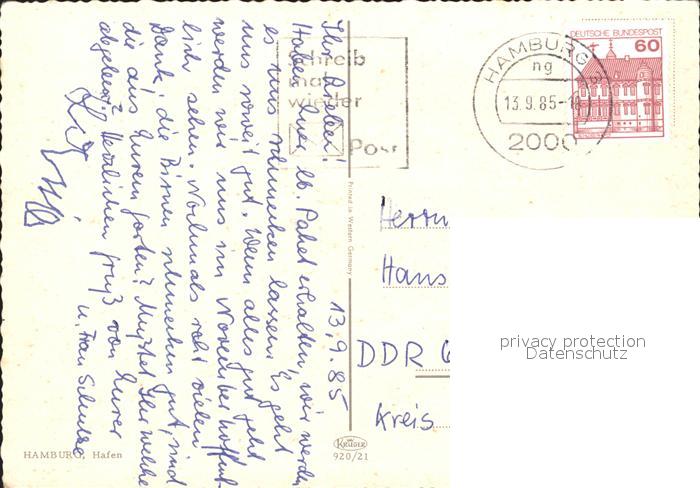 Ihr Lieben!
Haben Euer lb. Paket erhalten, wir werden
es uns schmecken lassen. Es geht
uns soweit gut. Wenn alles gut geht
werden wir uns im November hoffent-
lich sehen. Nochmals recht vielen
Dank, die Birnen schmecken gut, sind
die aus Eurem Garten? Musstet Ihr welche
abgeben? Herzlichen Gruß von Eurer
u. Frau Schulze
13.9.85
Schreib
mal
wieder
Post
HAMBURG
ng
13.9.85-18
2000
DEUTSCHE BUNDESPOST
60
Printed in Western Germany
Herrn
Hans
DDR 6
Kreis
privacy protection
Datenschutz
KRÜGER
920/21
HAMBURG, Hafen